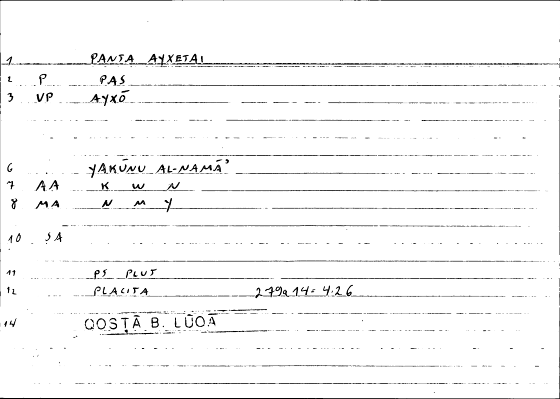 1 PANTA AYXETAI
2 P PAS
3 VP AYXŌ
6 YAKŪNU AL-NAMĀ'
7 AA K W N
8 MA N M Y
10 SA
11 PS PLUT
12 PLACITA 279a14 = 4.26
14 QOSṬĀ B. LŪQĀ